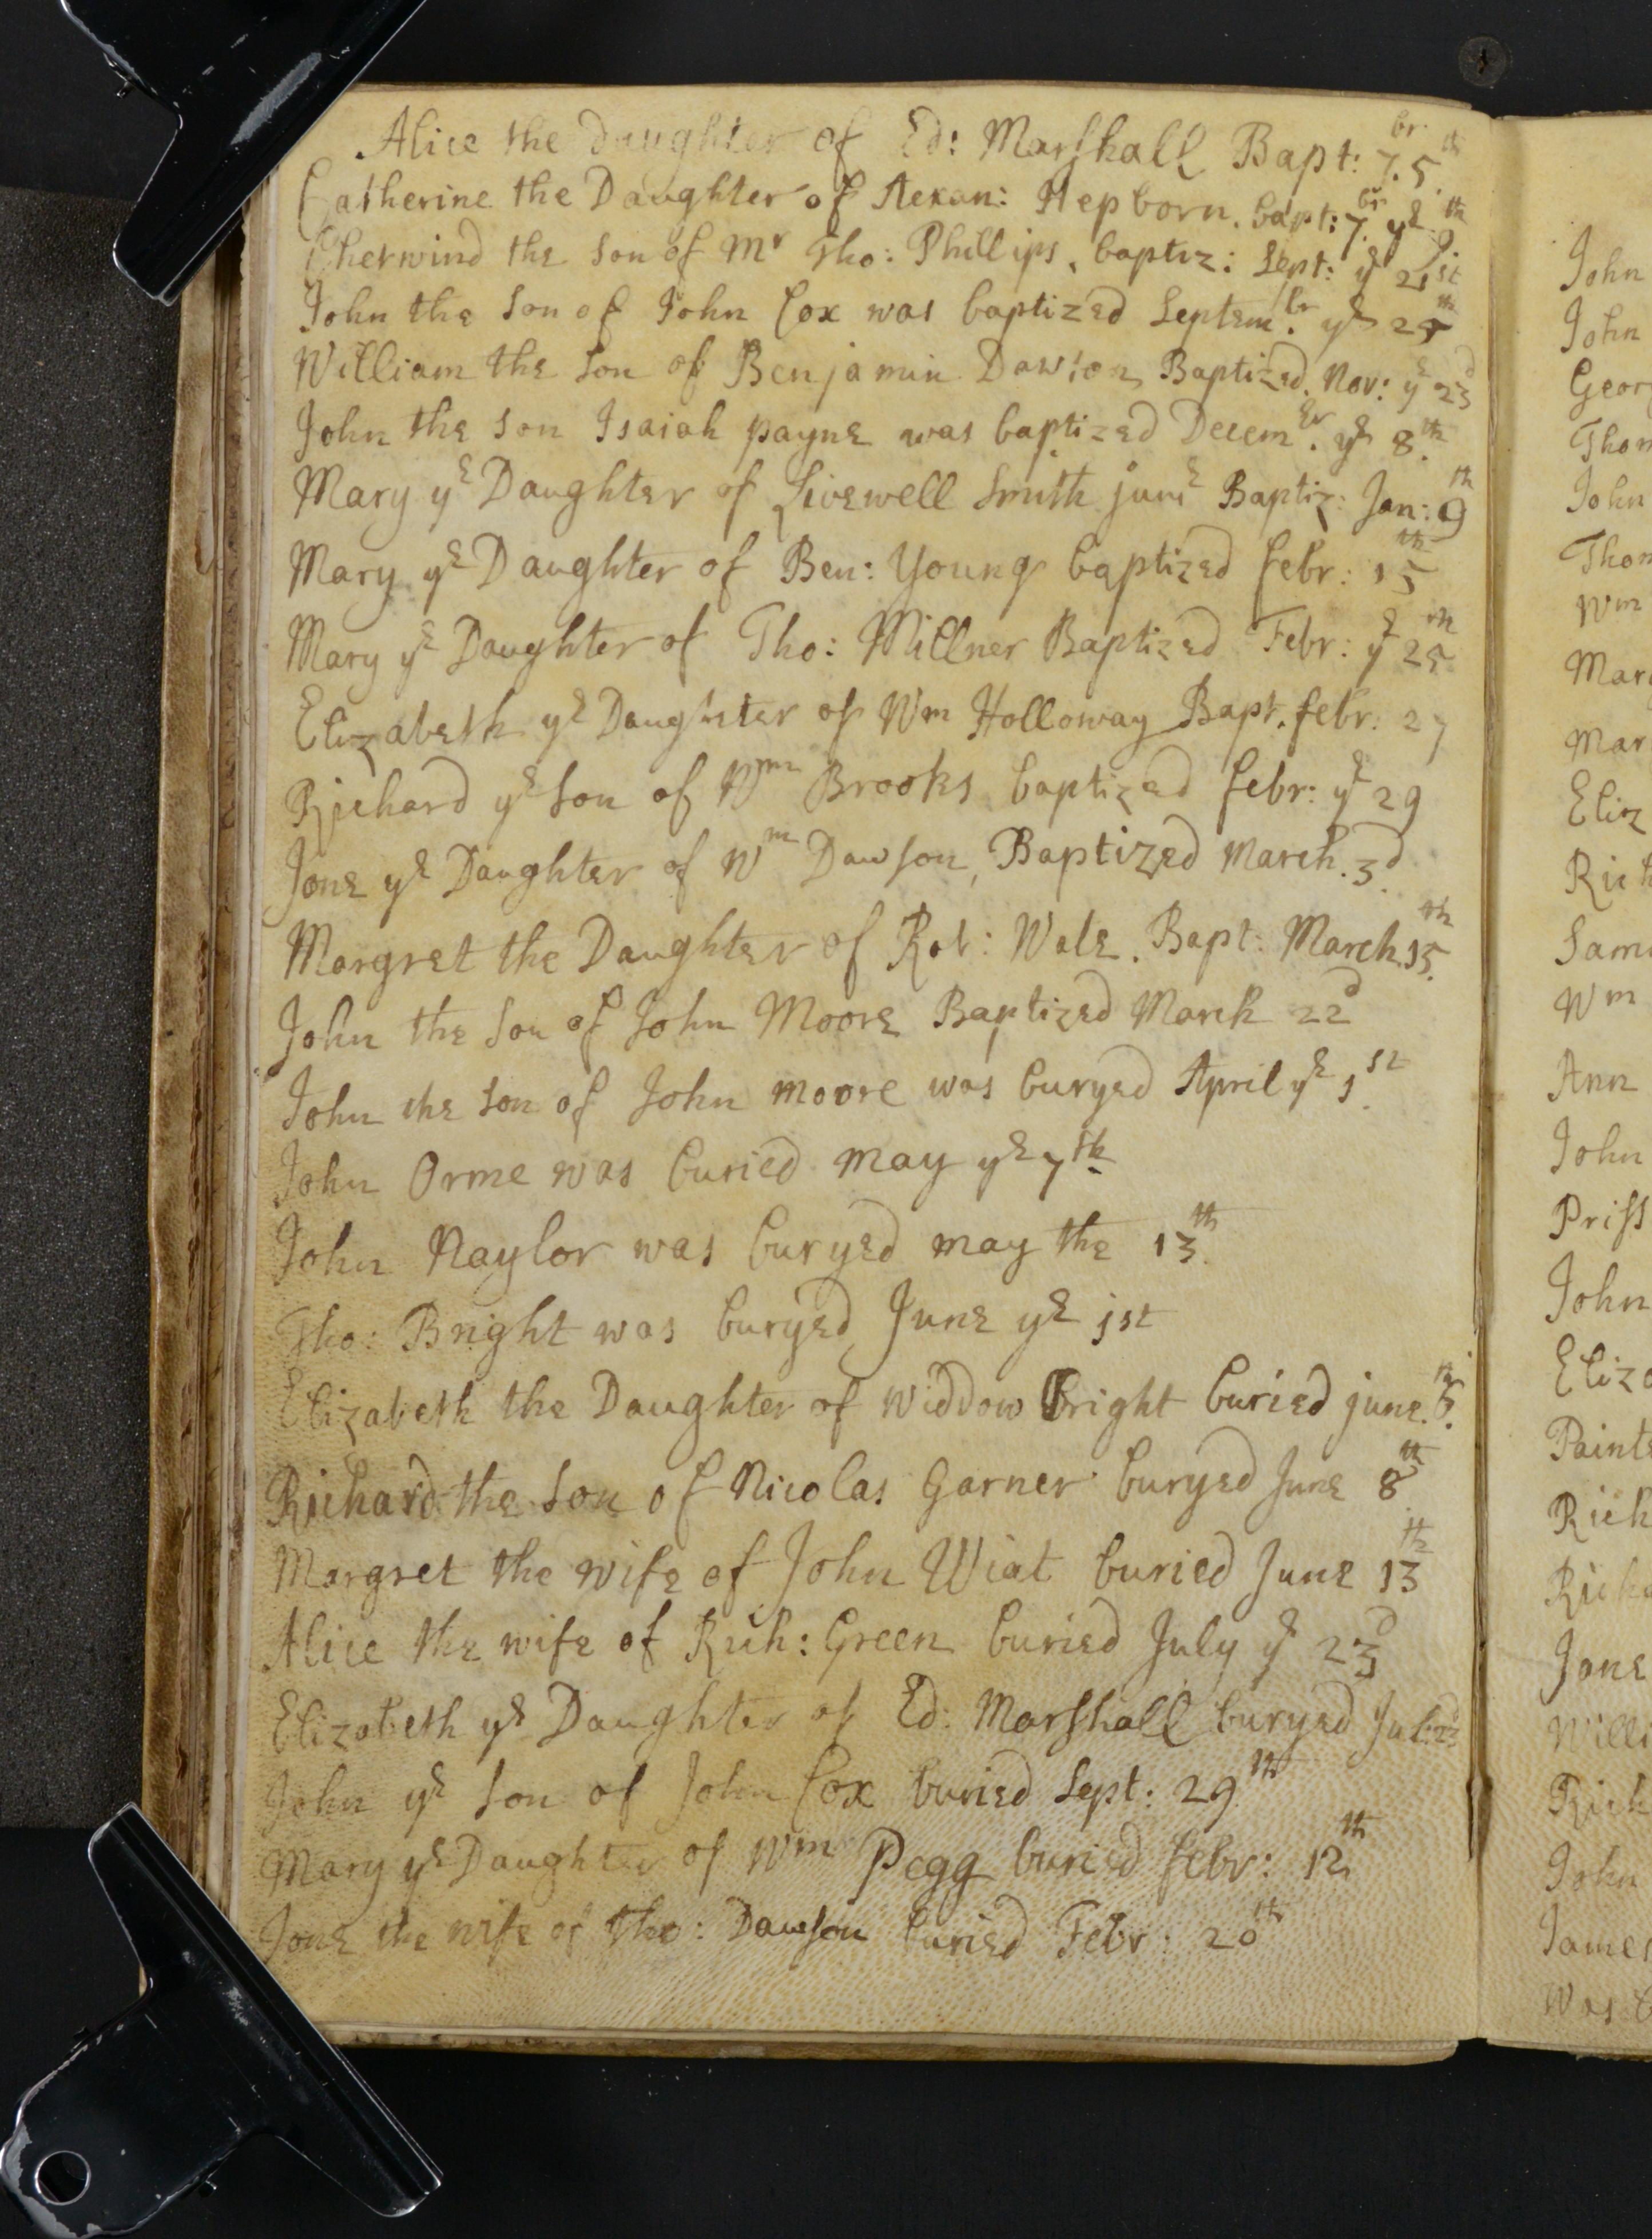 Alice the Daughter of Ed: Marshall Bapt: 7.br 5.th
Catherine the Daughter of Aexan: Hepborn. bapt: 7.br ye 9.th
Cherwind the Son of Mr Tho: Phillips, baptiz: Sept: ye 21st
John the Son of John Cox was baptized Septem.br ye 25th
William the Son of Benjamin Dawson Baptized. Nov: ye 23d
John the Son Isaiah payne was baptized Decem.br ye 8.th
Mary ye Daughter of Livewell Smith june Baptiz: Jan: 9th
Mary ye Daughter of Ben: Young baptized febr: 15th
Mary ye Daughter of Tho: Millner Baptized Febr: ye 25th
Elizabeth ye Daughter of Wm Holloway Bapt. febr: 27
Richard ye Son of Wm Brooks baptized febr: ye 29
Jone ye Daughter of Wm Dawson, Baptized March. 3d.
Margret the Daughter of Rob: Wale. Bapt: March 15.th
John the Son of John Moore Baptized March 22d
John the Son of John moore was buryed April ye 1st.
John Orme was buried may ye 7th
John Naylor was buryed may the 13th.
Tho: Bright was buryed June ye 1st
Elizabeth the Daughter of Widdow Bright buried june. 6.th
Richard the Son of Nicolas Garner buryed June 8th
Margret the wife of John Wiat buried June 13th
Alice the wife of Rich: Green buried July ye 23d
Elizabeth ye Daughter of Ed: Marshall buryed Jul:
John ye Son of John Cox buried Sept: 29th
Mary ye Daughter of Wm Pegg buried febr: 12th
Jone the wife of Tho: Dawson buried Febr: 20th
John
John
Geor
Thom
John
Thom
Wm
Mar
Mar
Eliz
Rich
Sam
Wm
Ann
John
Priss
John
Eliz
Paint
Rich
Rich
Jone
Willi
Rich
John
James
Was